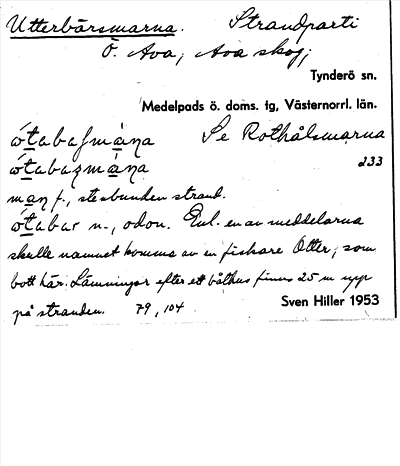 Utterbärsmarna. Strandparti
Ö. Ava, Ava skog;
Tynderö sn.
Medelpads ö. doms. tg, Västernorrl. län.
Se Rothålsmarna
d33
ma̠n f., stenbunden strand.
n., odon. Enl. en av meddelarna
skulle namnet komma av en fiskare Otter, som
bott här. Lämningar efter ett båthus finns 25 m upp
på stranden. 79, 104
Sven Hiller 1953